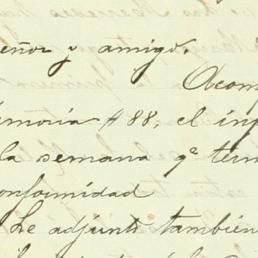 eñor y amigo.
Acom
emoria #88, el inf
la semana qe term
onformidad
Le adjunto también